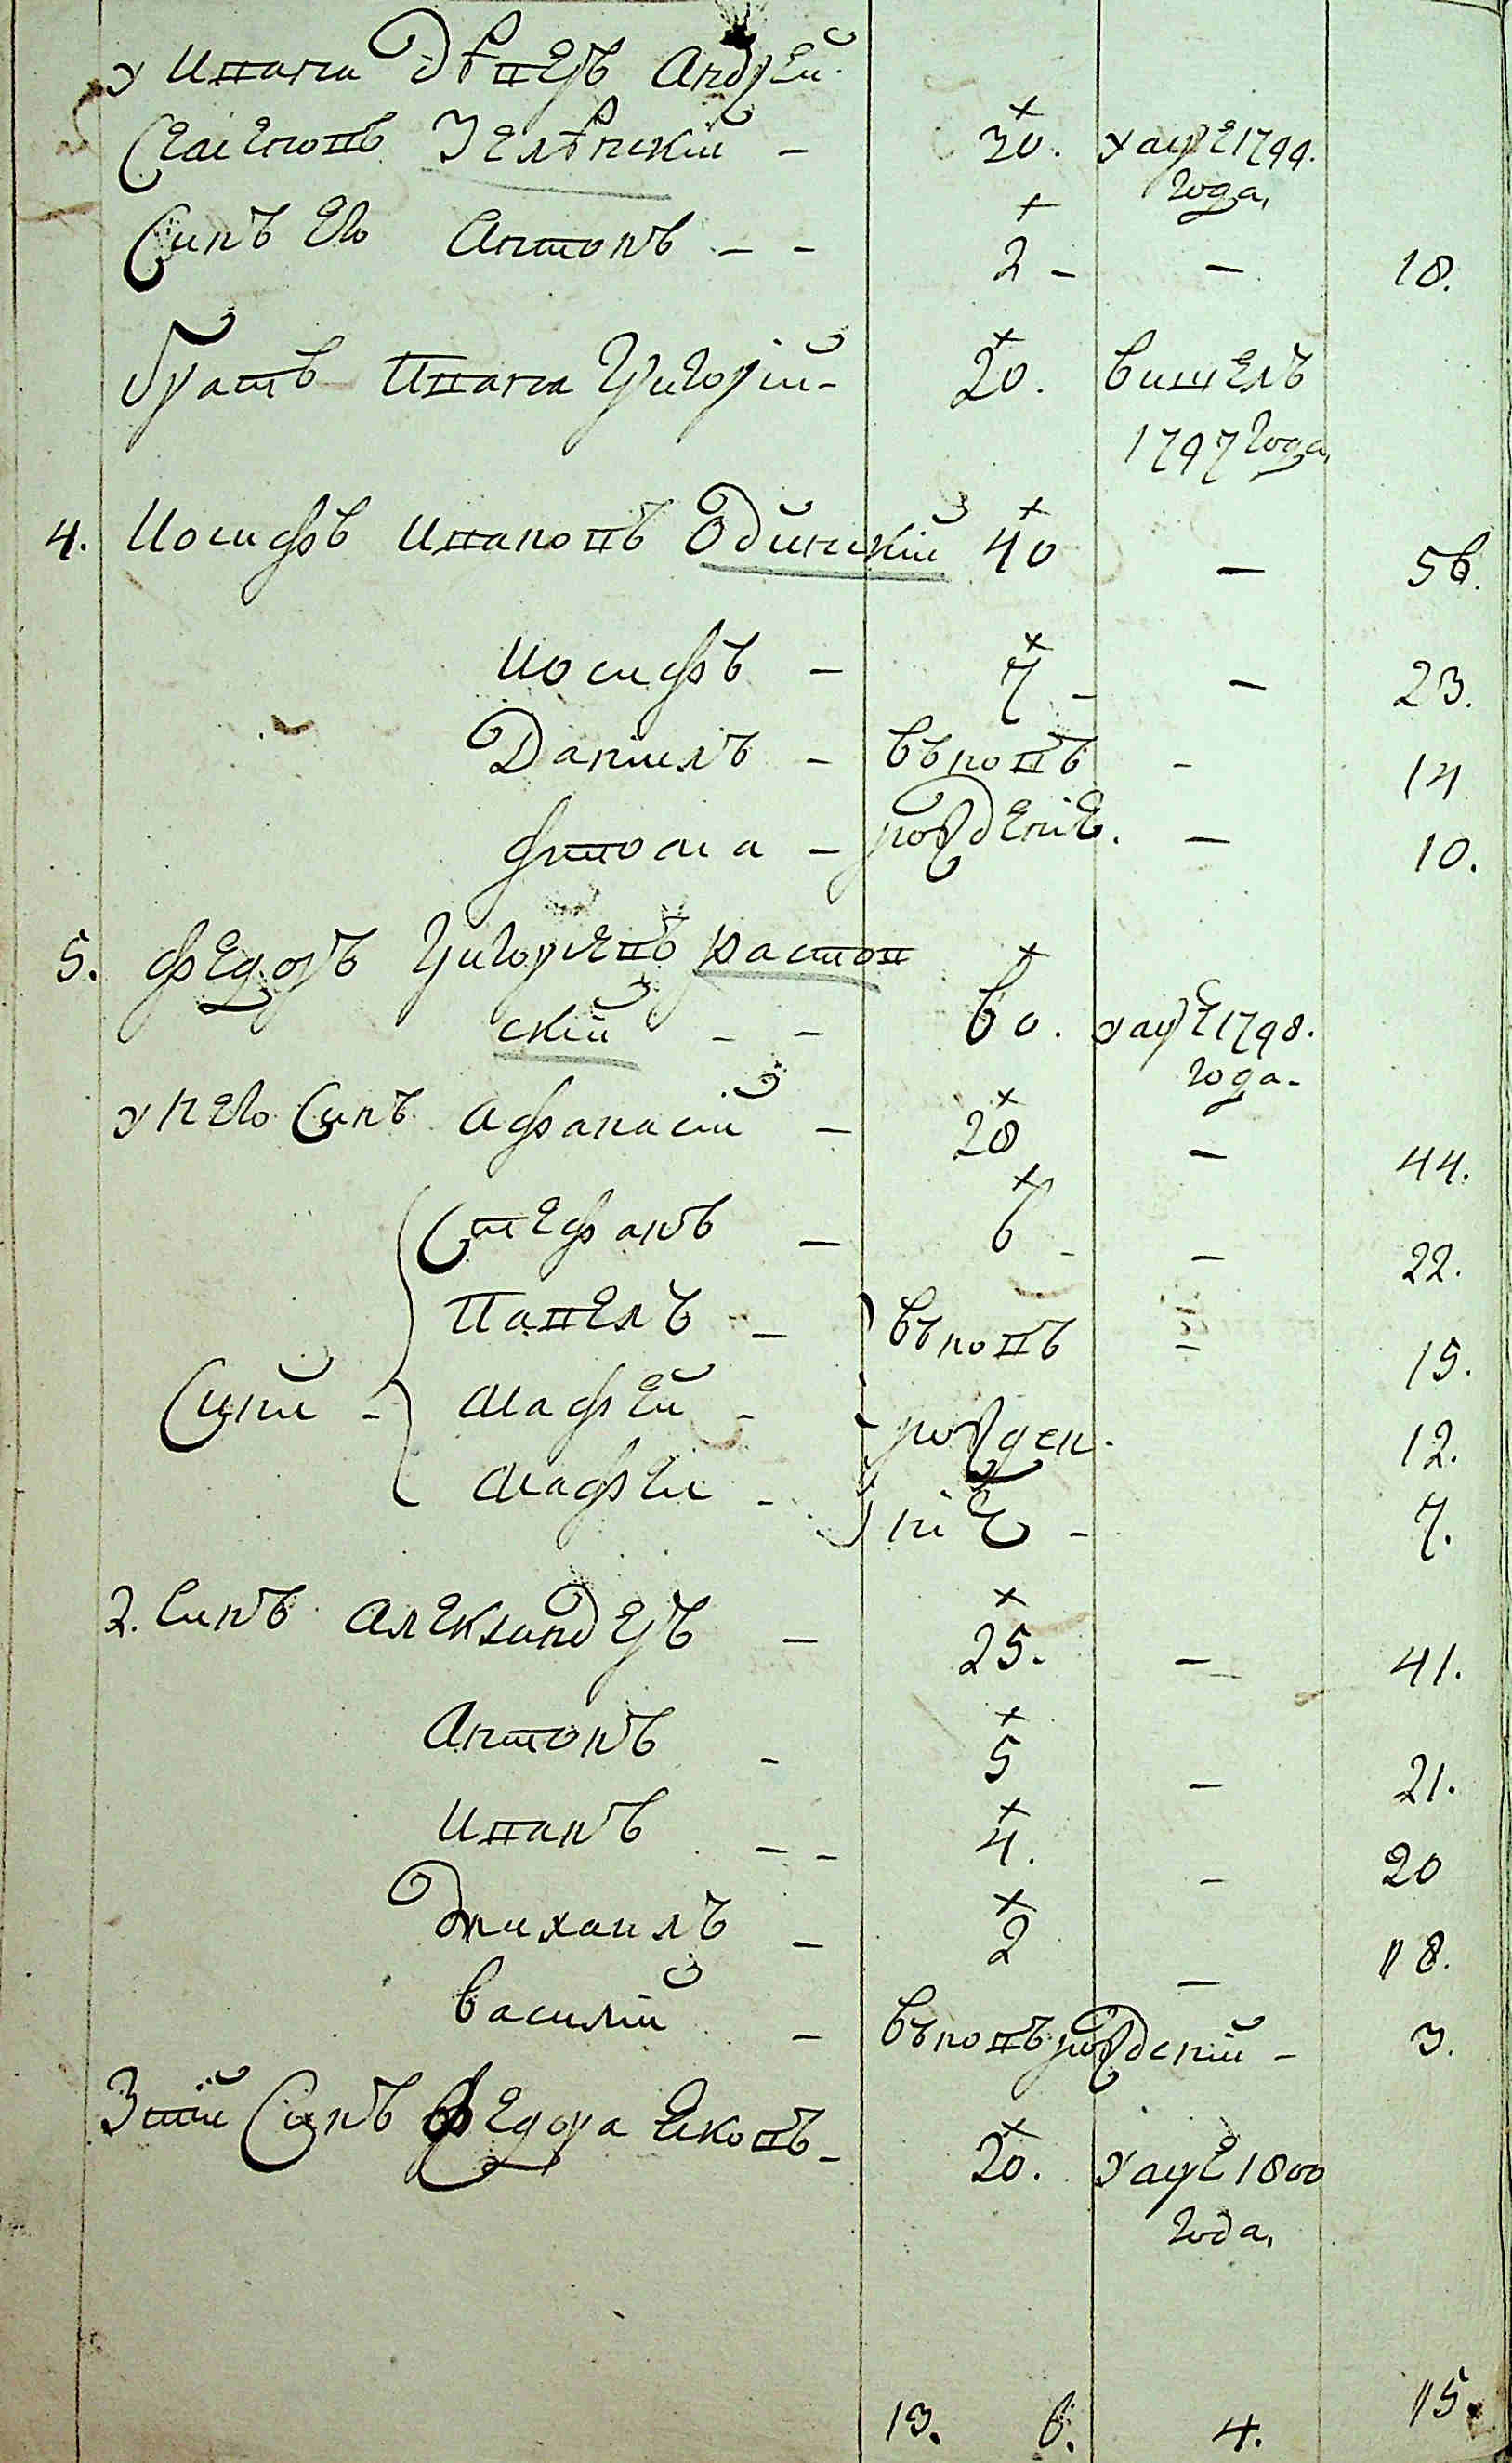 у Ивана Дѣверъ Андрей
Семеновъ Зелѣнскій - 30. умре 1799.
года,
Синъ его Антонъ - - 2 - - 18.
братъ Ивана Григорій - 20. вишелъ
1797 года,
4. Иосифъ Ивановъ Одинскій 40 - 56.
Иосифъ - 7 - - 23.
Даниилъ - вьновъ - 14
Фтома - рожденіе. - 10.
5. Федоръ Григориевъ Растов
скій - - 60. умре 1798.
года.
у него Синъ Афанасій - 28 - 44.
Стефанъ - 6 - - 22.
Павелъ - вьновъ - 15.
Сини - Мафей - рожден. 12.
Мафеи - ніе - 7.
2. Синъ Александеръ - 25. - 41.
Антонъ - 5 - 21.
Иванъ - - 4. - 20
Михаилъ - 2 - 18.
Василій - вьновъ рожденій - 3.
3тій Синъ Федора Яковъ - 20. умре 1800
года,
13. 6. 4. 15.